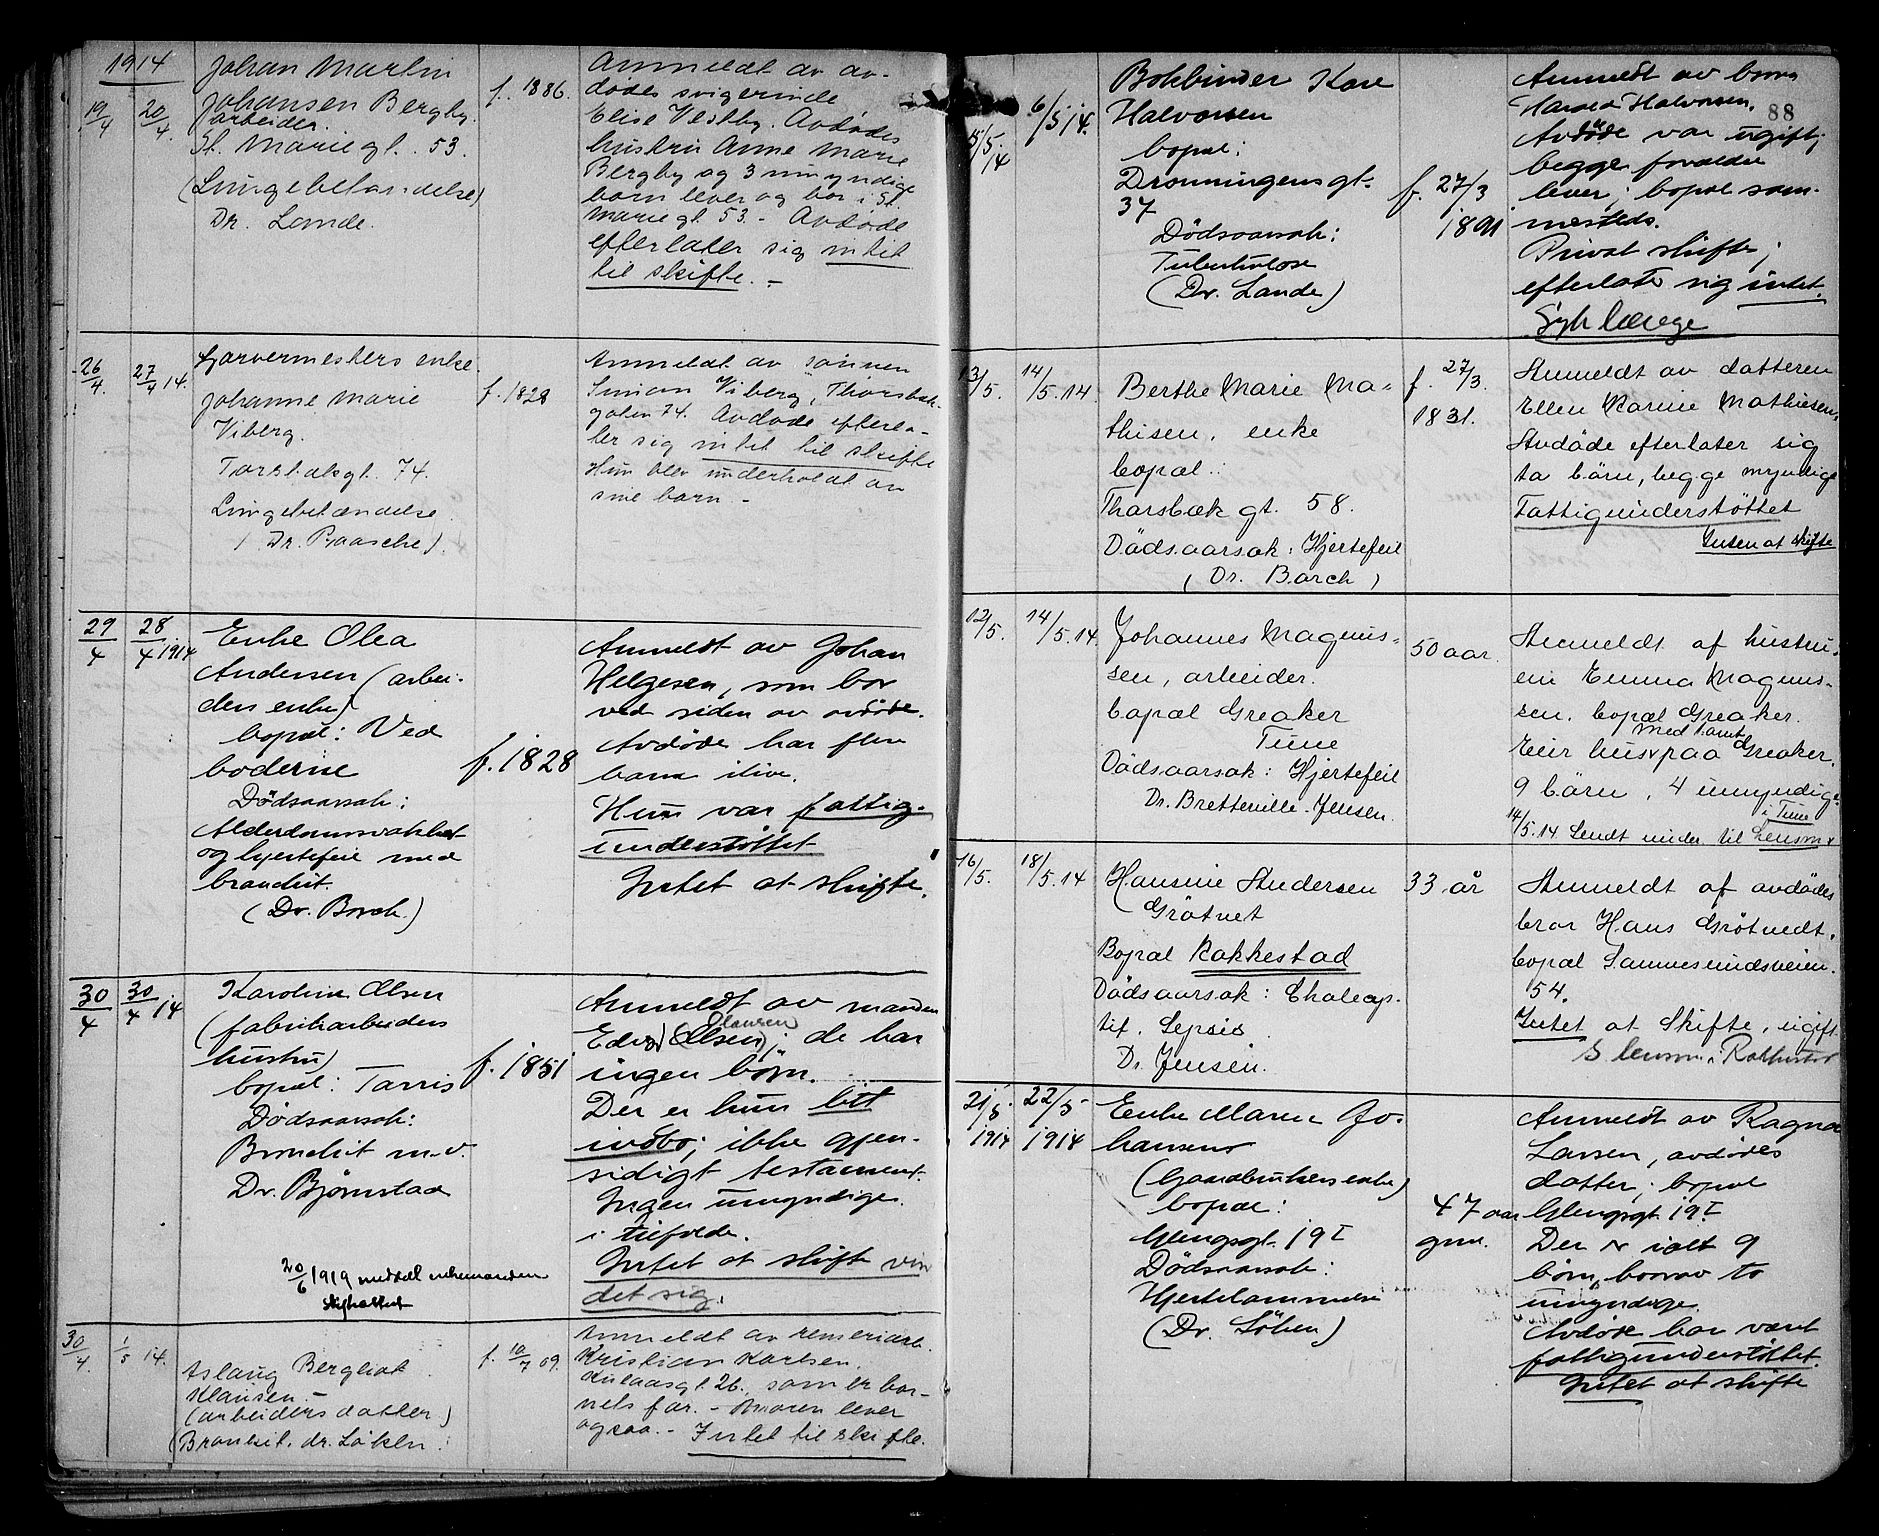 1914
19/4
20/4
Johan Martin
Johansen Bergby.
arbeider.
St. Mariegt. 53.
(Lungebetændelse)
Dr. Lande.
f. 1886.
Anmeldt av av-
dødes svigerinde
Elise Vestby. Avdødes
hustru Anne Marie
Bergby og 3 umyndige
barn lever og bor i St.
Mariegt. 53. - Avdøde
efterlater sig intet
til skifte. -
26/4.
27/4 14.
Garvermesters enke
Johanne Marie
Viberg.
Torsbæksgt. 74.
Lungebetændelse.
(Dr. Paasche).
f. 1828
Anmeldt av sønnen
Simon Viberg, Thorsbæk-
gaten 74. Avdøde efterla-
ter sig intet til skifte
Hun blev underholdt av
sine barn. -
29/4
28/4 1914
Enke Olea
Andersen (arbei-
ders enke)
bopæl: Ved
boderne
Dödsaarsak:
Alderdomssvakhet
og hjertefeil med
bronchit.
(Dr. Borch.)
f. 1828
Anmeldt av Johan
Helgesen, som bor
ved siden av avdøde.
Avdøde har flere
barn ilive.
Hun var fattig-
understøttet
Intet at skifte.
30/4
30/4 14
Karoline Olsen
(fabrikarbeiders
hustru)
bopæl: Tarris
Dödsaarsak:
Bronchit m.v.
Dr. Bjørnstad
20/6 1919 meddelt enkemanden
skifteattest
f. 1851
Anmeldt av manden
Edvard (Olsen) Clausen; de har
ingen børn.
Der er kun litt
indbo; ikke gjen-
sidigt testament.
Ingen umyndige
i tilfælde.
Intet at skifte
det sig.
30/4.
1/5 14.
Aslaug Bergliot
Klausen -
(arbeiders datter)
(Bronkit. dr. Löken.
f. 10/7 09.
Anmeldt av remeriarb.
Kristian Karlsen,
Kulaasgt. 26, som er bar-
nets far. - Moren lever
ogsaa. - Intet til skifte.
88
15/5. 14
6/5 14.
Bokbinder Kare
Halvorsen
bopæl:
Dronningens gt.
37
Dödsaarsak:
Tuberkulose
(Dr. Lande)
f. 27/3
1891
Anmeldt av brors
Harald Halvorsen.
Avdøde var ugift;
begge forældre
lever; bopæl sam-
mesteds.
Privat skifte;
efterlater sig intet.
13/5.
14/5.14.
Berthe Marie Ma-
thisen, enke
bopæl:
Thorsbæk gt. 58.
Dödsaarsak: Hjertefeil
(Dr. Borch)
f. 27/3.
1831.
Anmeldt av datteren
Ellen Karine Mathiesen,
Avdöde efterlater sig
to börn, begge myndige
Fattigunderstöttet
Intet at skifte
12/5.
14/5.14.
Johannes Magnus-
sen, arbeider.
bopæl Greaker
Tune
Dödsaarsak: Hjertefeil
Dr. Bretteville-Jensen.
50 aar.
Anmeldt af hustru-
en Emma Magnus-
sen. bopæl Greaker.
Eier hus med tomt paa Greaker.
9 börn, 4 umyndige
14/5.14 Sendt under. til Lensm. i Tune
16/5.
18/5.14
Hansine Andersen
Grötvet
Bopæl Rakkestad
Dödsaarsak: Cholecys-
tit. Sepsis
Dr. Jensen.
33 år
Anmeldt af avdödes
bror Hans Grötvedt.
bopæl Sannesundsveien.
54.
Intet at skifte, ugift
S. lensm. i Rakkestad
21/5
1914
22/5
1914
Enke Maren Jo-
hansen
(Gaardbrukers enke)
bopæl:
Glengsgt. 19 I
Dödsaarsak:
Hjertelammelse
(Dr. Löken)
47 aar
gml.
Anmeldt av Ragna
Larsen, avdødes
datter; bopæl
Glengsgt. 19 I
Der er ialt 9
børn, horav to
umyndige.
Avdøde har vært
fattigunderstöttet.
Intet at skifte